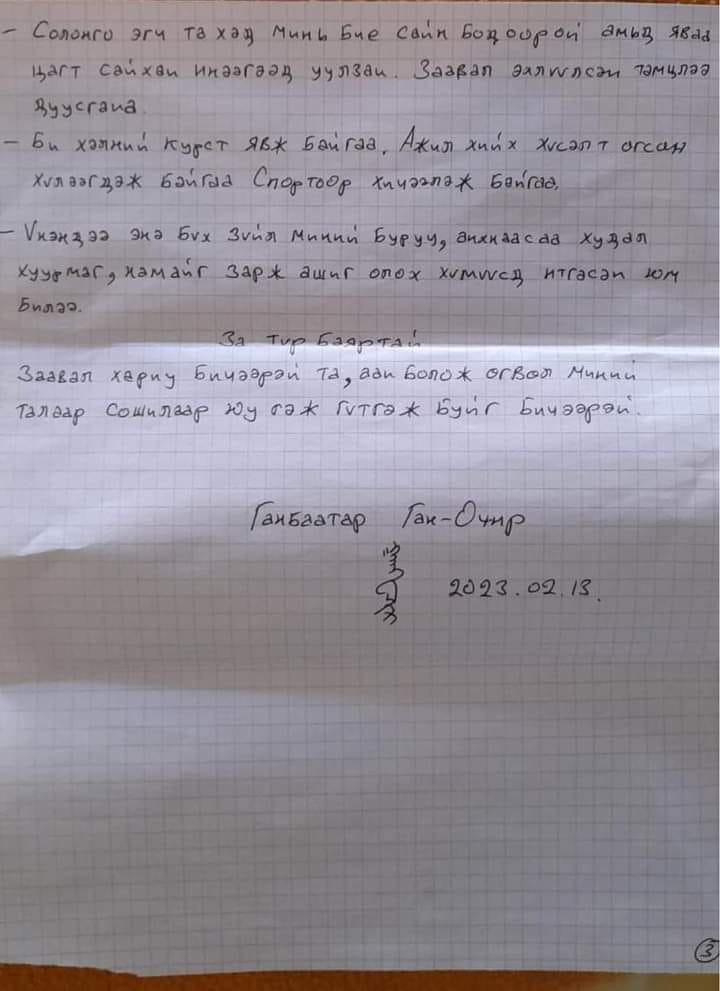 - Солонго эгч та хэд минь бие сайн бодоорой амьд яваа
цагт сайхан инээгээд уулзан. Заавал эхлvvлсэн тэмцлээ
дуусгана.
- Би хэлний курст явж байгаа. Ажил хийх хvсэлт өгсөн
хvлээгдэж байгаа Спортоор хичээлэж байгаа.
- Vнэндээ энэ бvх зvйл миний буруу, анхнаасаа худал
хуурмаг, намайг зарж ашиг олох хvмvvсд итгэсэн юм
билээ.
За тvр баяртай
Заавал хариу бичээрэй та, аан болож өгвөл миний
талаар сошилаар юу гэж гvтгэж буйг бичээрэй.
Ганбаатар Ган-Очир
2023.02.13.
3